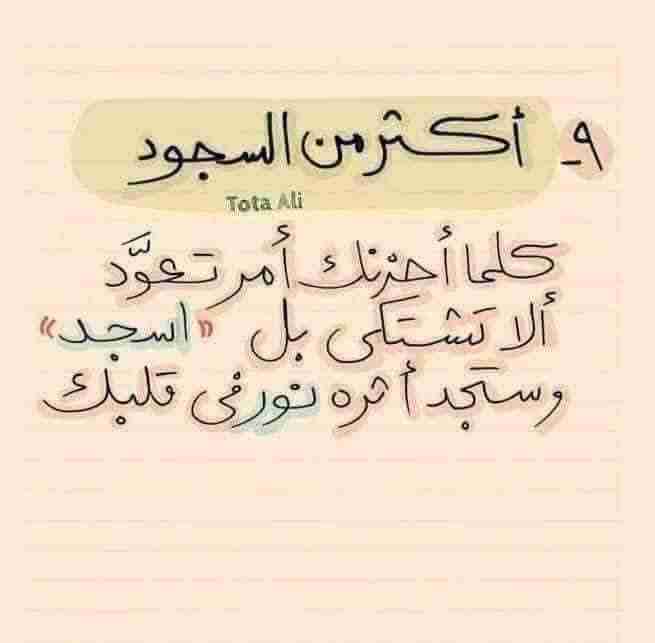 ٩- أكثر من السجود
Tota Ali
كلما أحزنك أمر تعوَّد
ألا تشتكي بل «اسجد»
وستجد أثره نور في قلبك